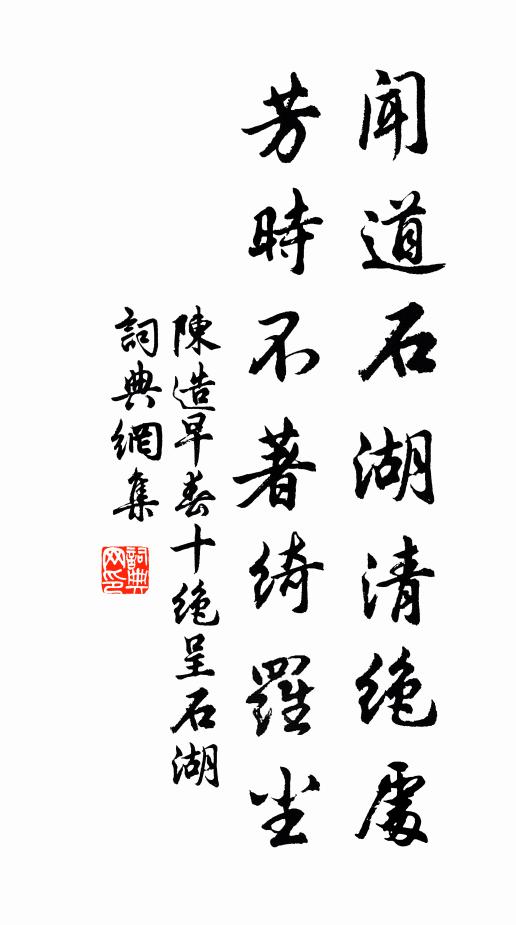 聞道石湖清絶處
芳時不著綺羅尘
陳造早春十絶呈石湖
詞典網集
詞典网印